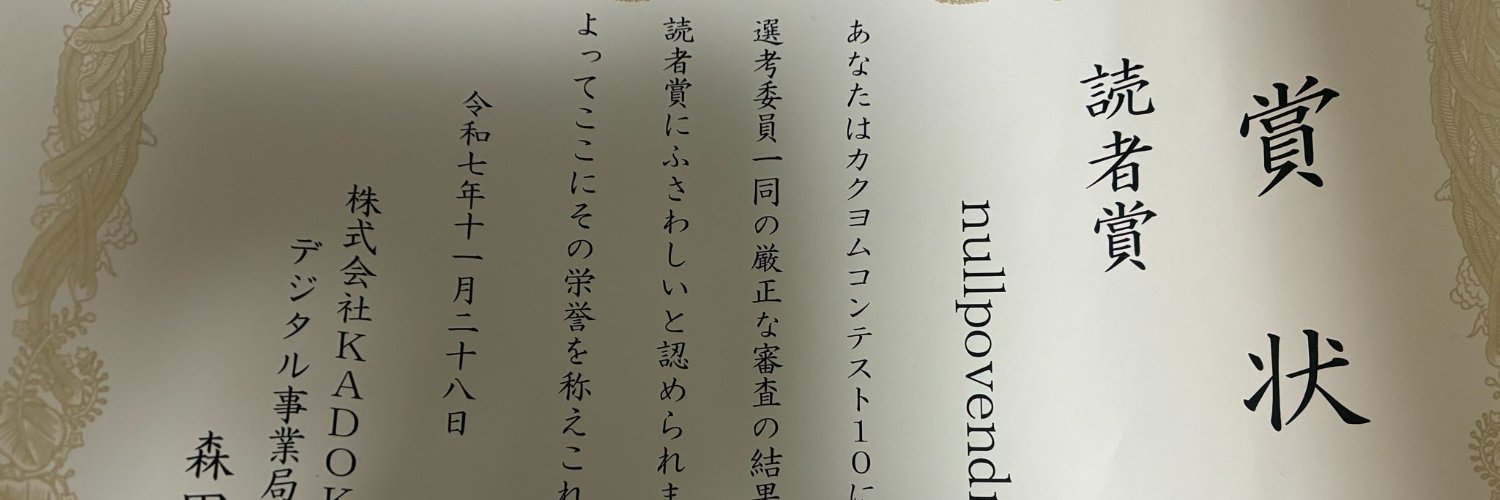 賞状
読者賞
nullpovend
あなたはカクヨムコンテスト10に
選考委員一同の厳正な審査の結果
読者賞にふさわしいと認められま
よってここにその栄誉を称えこれ
令和七年十一月二十八日
株式会社KADOK
デジタル事業局
森田